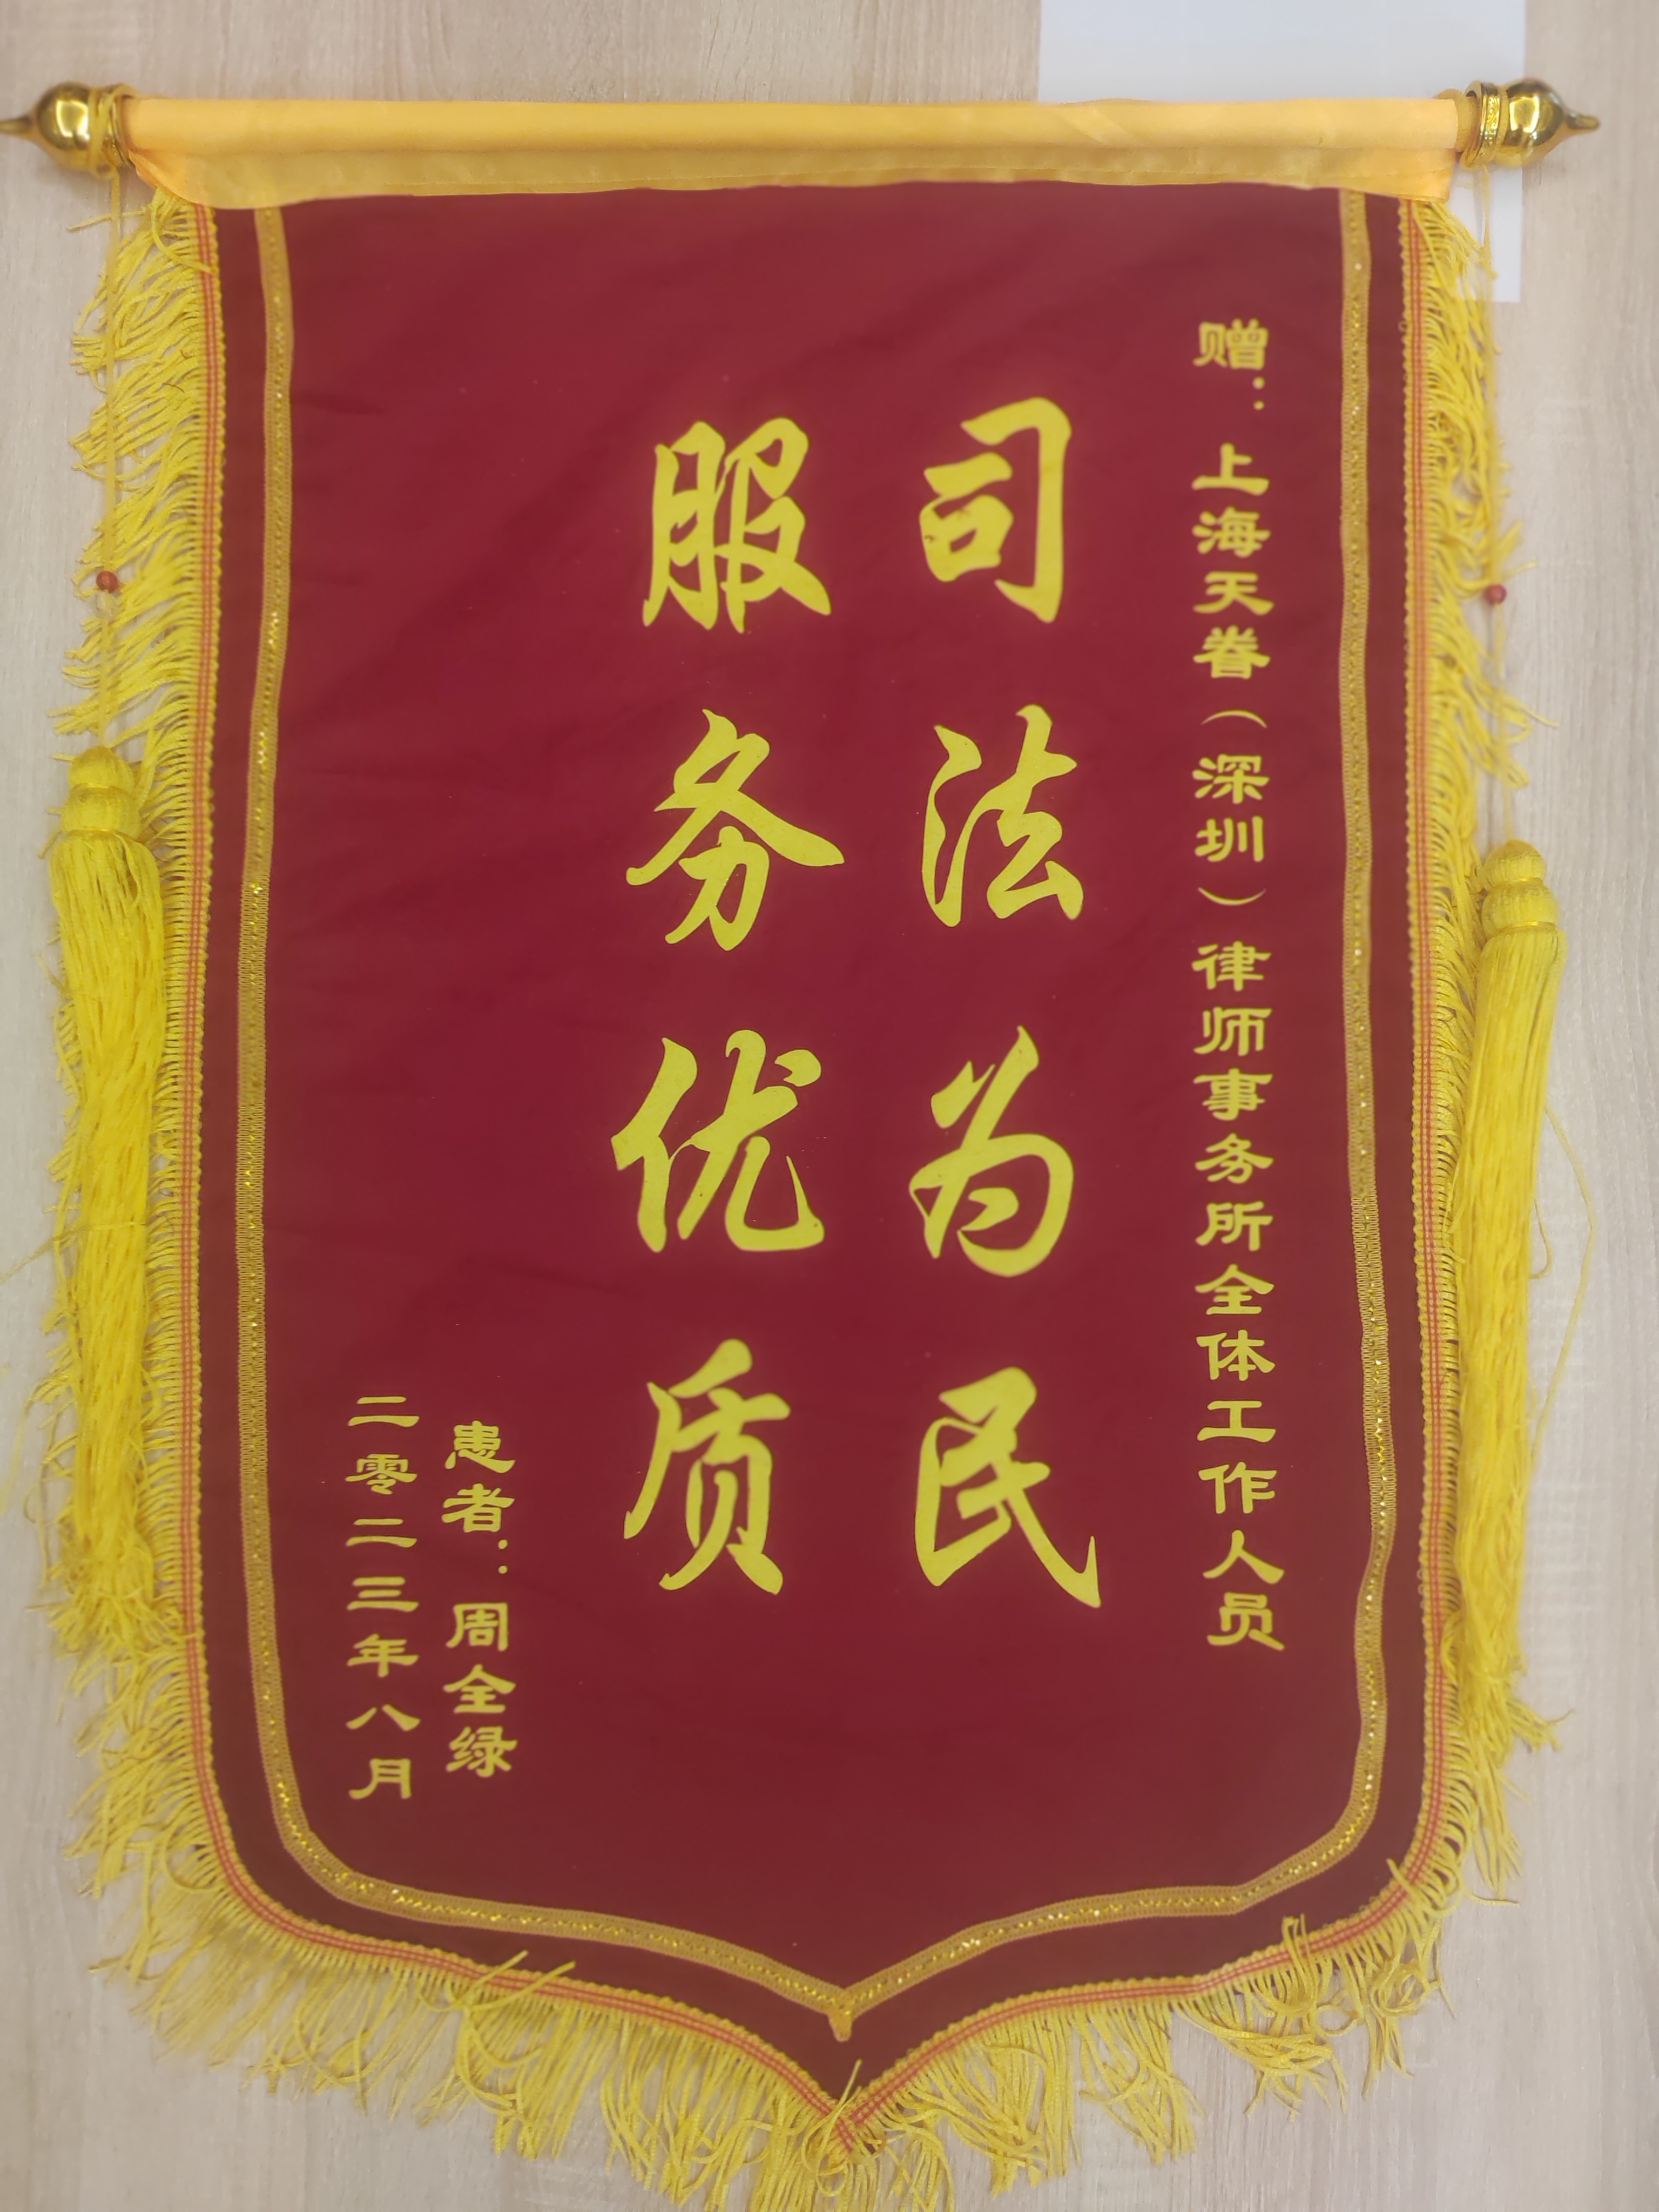 赠：上海天眷（深圳）律师事务所全体工作人员
司法为民
服务优质
患者：周全绿
二零二三年八月